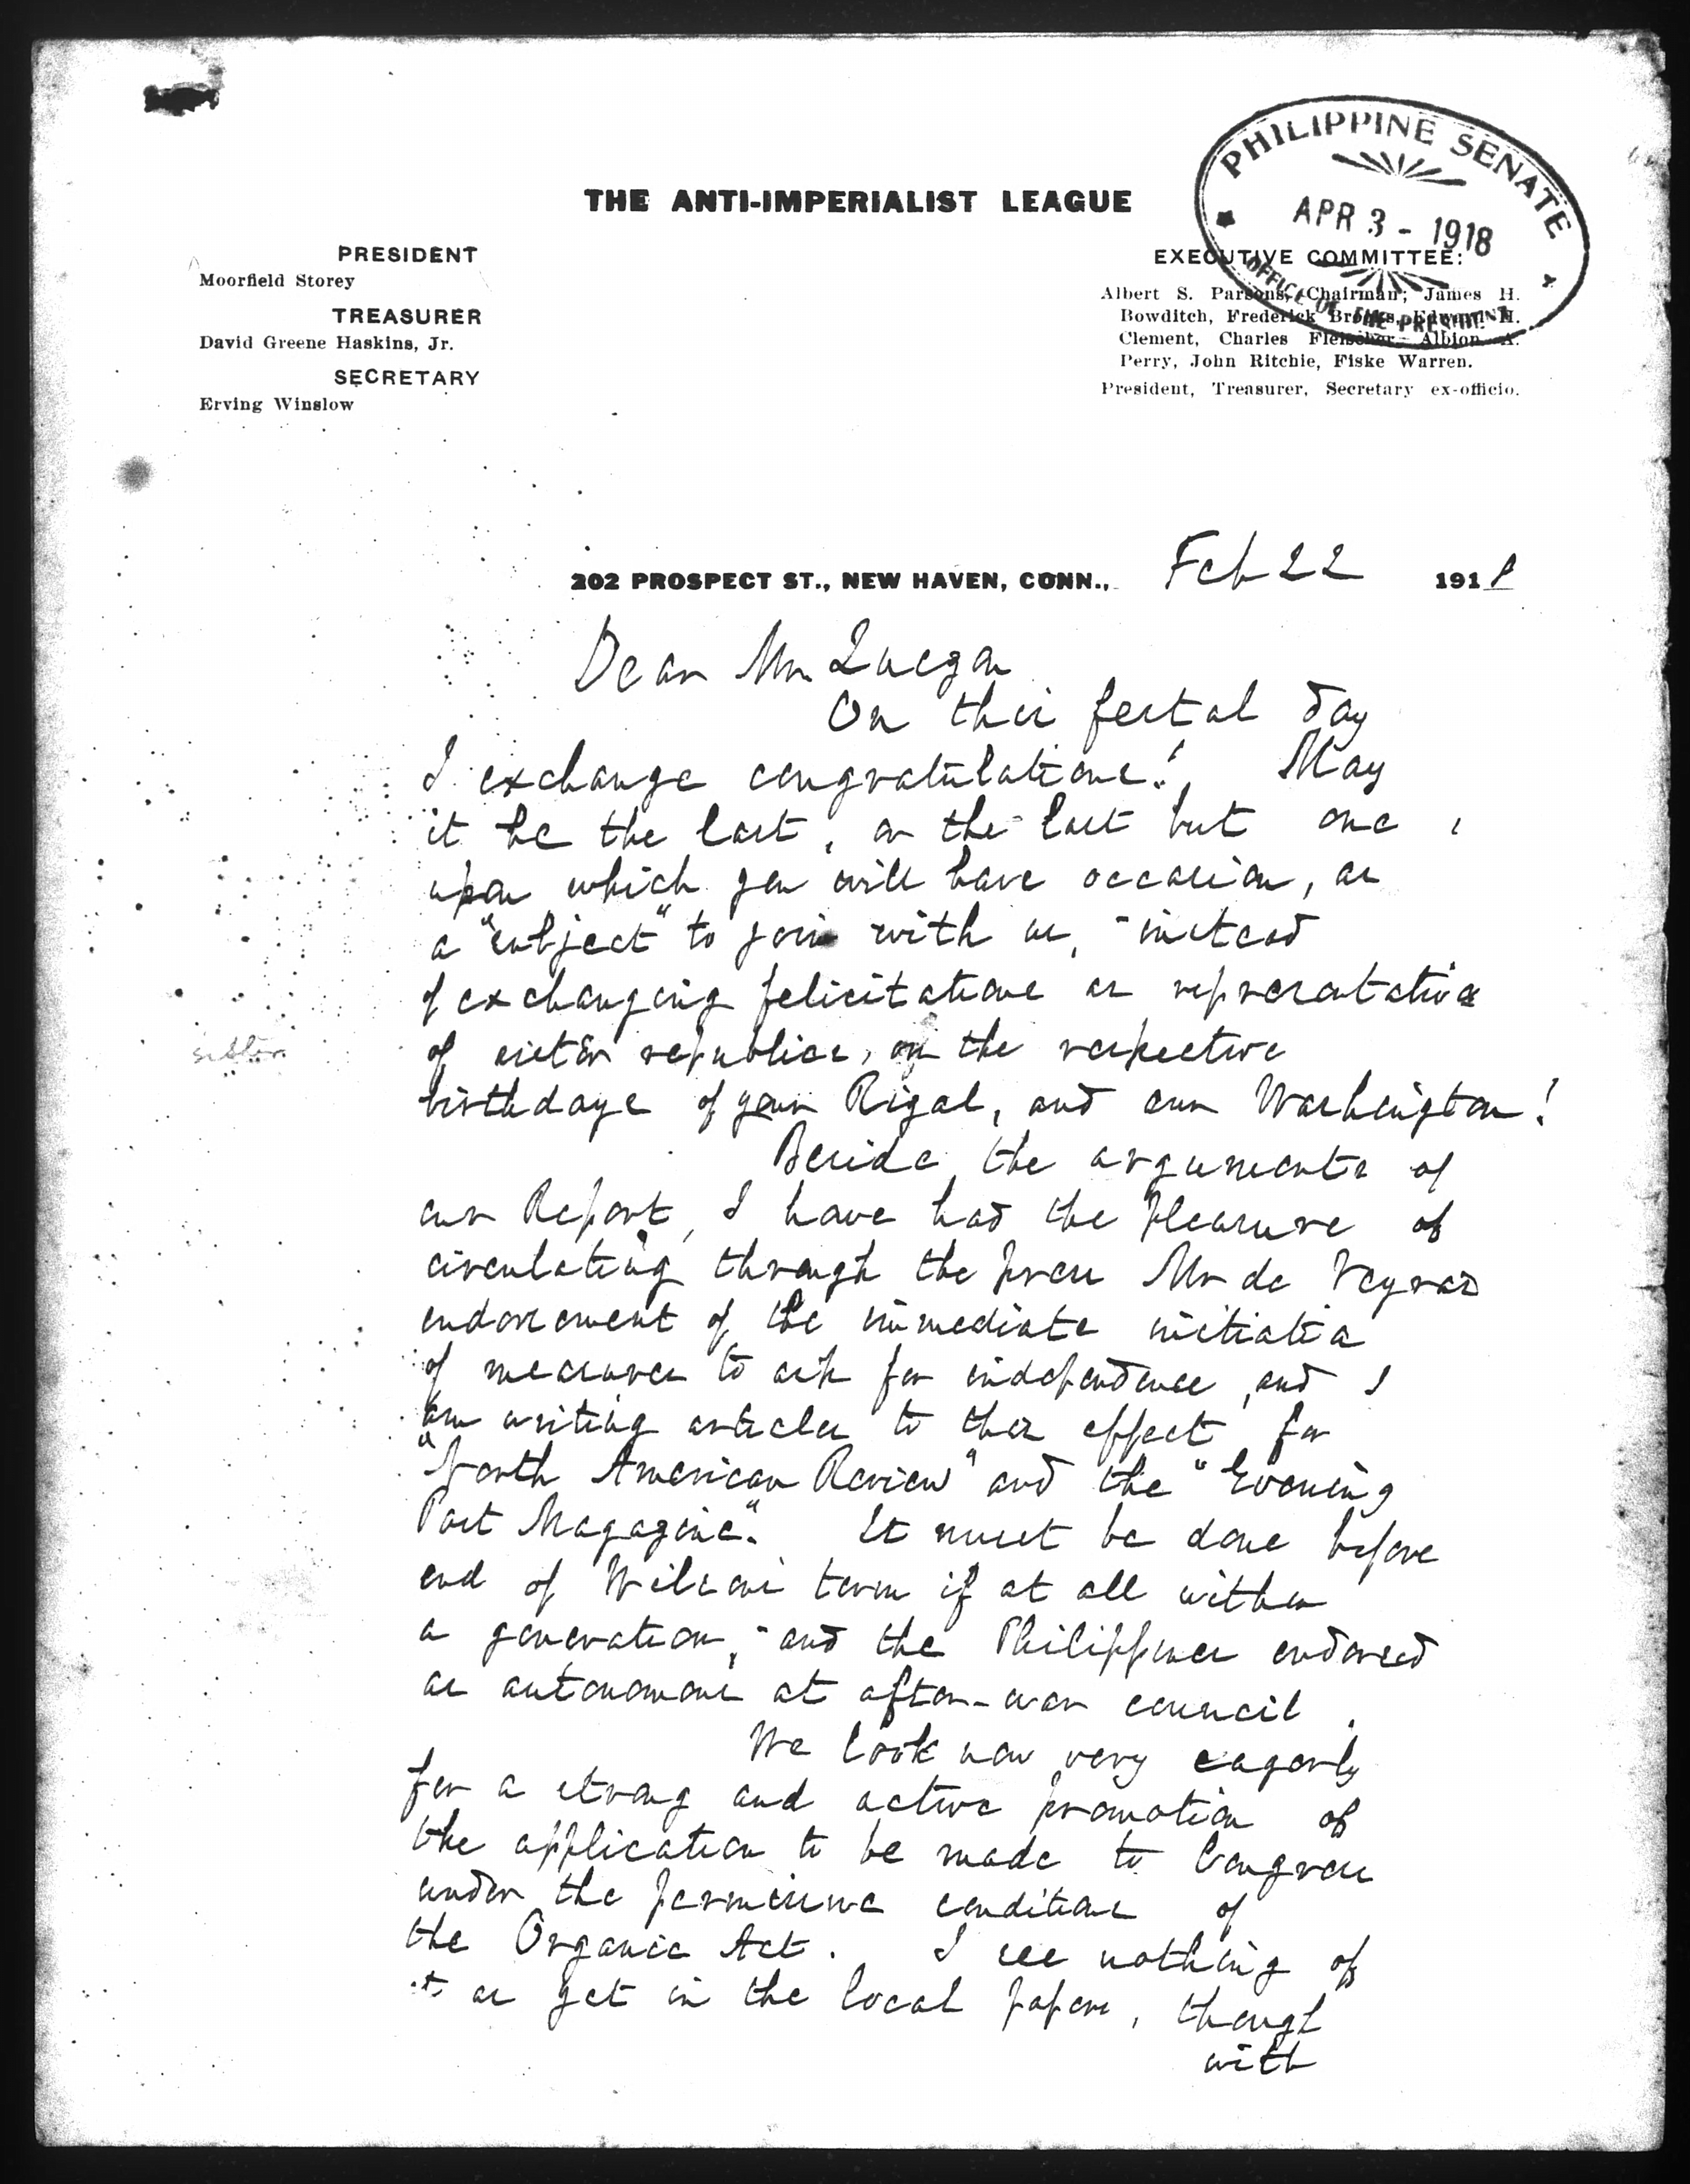 THE ANTI-IMPERIALIST LEAGUE
PHILIPPINE SENATE
APR 3 - 1918
OFFICE OF THE PRESIDENT
PRESIDENT
Moorfield Storey
TREASURER
David Greene Haskins, Jr.
SECRETARY
Erving Winslow
EXECUTIVE COMMITTEE:
Albert S. Parsons, Chairman; James H.
Bowditch, Frederick Brooks, Edward H.
Clement, Charles Fleischer, Albion A.
Perry, John Ritchie, Fiske Warren.
President, Treasurer, Secretary ex-officio.
202 PROSPECT ST., NEW HAVEN, CONN., Feb 22 1918
Dear Mr. Quezon
On this festal day
I exchange congratulations! May
it be the last, or the last but one,
upon which you will have occasion, as
a "subject" to join with us, - instead
of exchanging felicitations as representative
of sister republics, on the respective
birthdays of your Rizal, and our Washington!
Beside the arguments of
our Report, I have had the pleasure of
circulating through the press Mr de Veyras
endorsement of the immediate initiation
of measures to ask for independence, and I
am writing articles to this effect for
"North American Review" and the "Evening
Post Magazine". It must be done before
end of Wilsons term if at all within
a generation, - and the Philippines endorsed
as autonomous at after-war council.
We look now very eagerly
for a strong and active promotion of
the application to be made to Congress
under the permissive conditions of
the Organic Act. I see nothing of
it as yet in the local papers, though
with